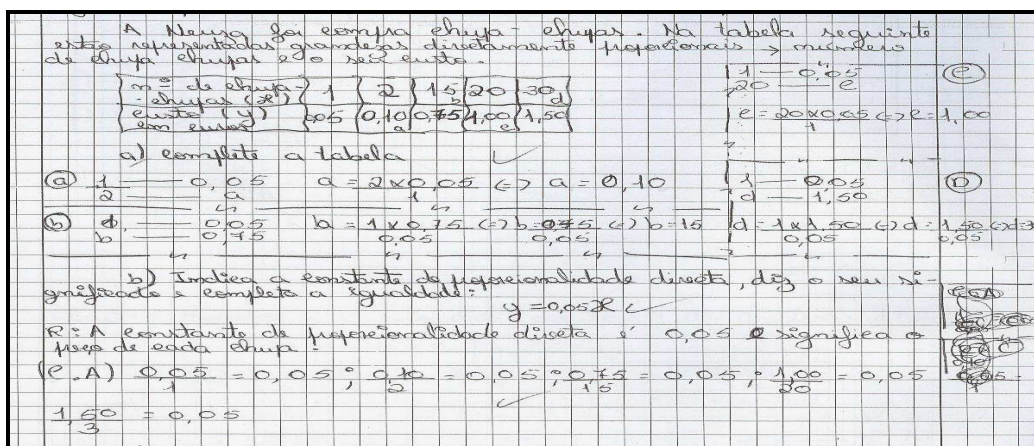 A Neusa foi compra chupa-chupas. Na tabela seguinte
estão representadas grandezas directamente proporcionais → número
de chupa chupas e o seu custo.
nº de chupa-chupas (x) 1 2 15 20 30
b d
custo (y) em euros 0,05 0,10 0,75 1,00 1,50
a c
a) complete a tabela
(a) 1 — 0,05 a = 2x0,05 (=) a = 0,10
2 — a 1
(b) 1 — 0,05 b = 1x0,75 (=) b = 0,75 (=) b = 15
b — 0,75 0,05 0,05
1 — 0,05 (c)
20 — c
c = 20x0,05 (=) c = 1,00
1
1 — 0,05 (D)
d — 1,50
d = 1x1,50 (=) d = 1,50 (=) d=3
0,05 0,05
b) Indica a constante de proporcionalidade directa, diz o seu si-
gnificado e completa a igualdade:
y = 0,05x
R: A constante de proporcionalidade directa é 0,05 e significa o
preço de cada chupa.
(C.A) 0,05/1 = 0,05 ; 0,10/2 = 0,05 ; 0,75/15 = 0,05 ; 1,00/20 = 0,05
1,50/3 = 0,05